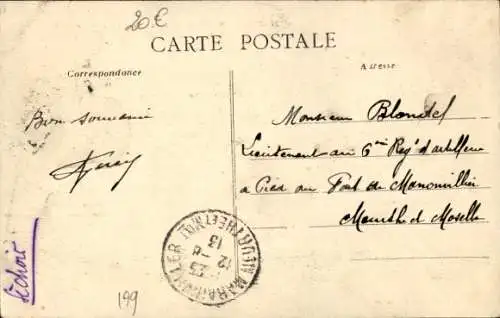 20 €
CARTE POSTALE
Correspondance
Adresse
Bon souvenir
Monsieur Blondel
Lieutenant au 6me Reg' d'artillerie
à Pied au Fort de Manonviller
Meurthe et Moselle
12 - 8
13
échoir
199